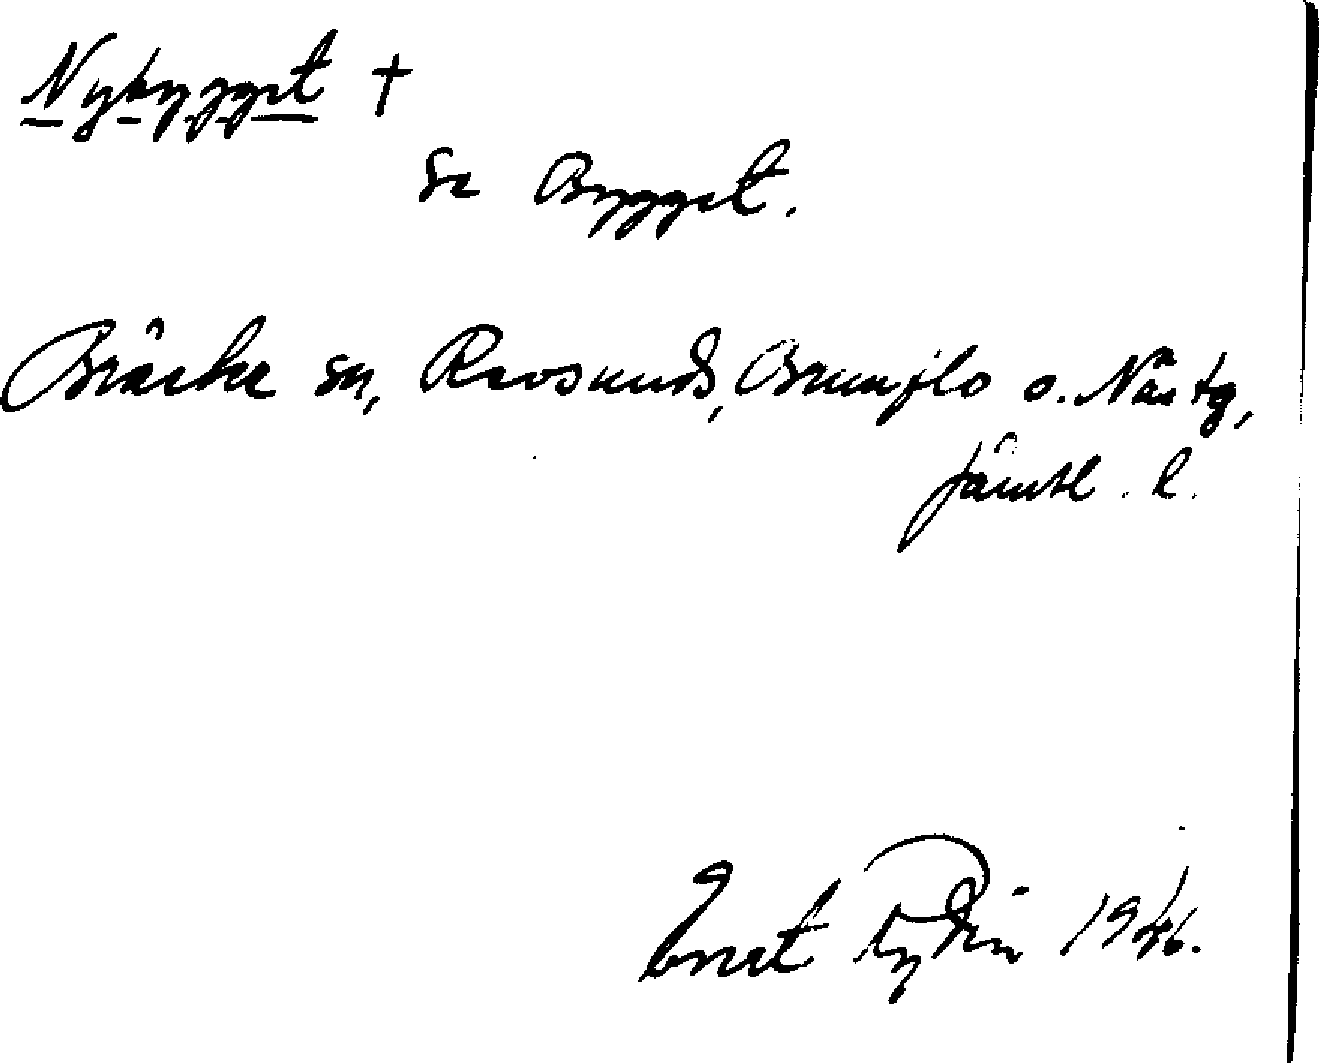 Nybygget †
Se Bygget.
Bräcke sn, Revsunds, Brunflo o. Näs tg,
Jämtl. l.
Enet Rydin 1946.